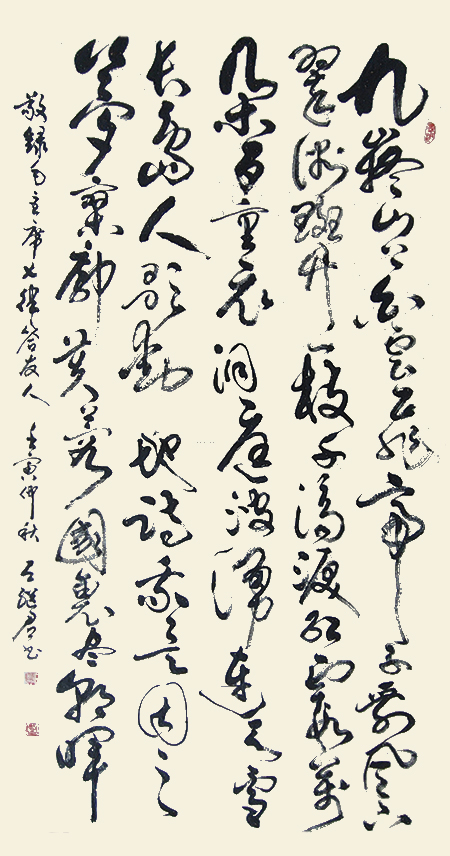 九嶷山上白雲飛帝子乘風下
翠微斑竹一枝千滴淚紅霞萬
朵百重衣洞庭波涌連天雪
長島人歌動地詩我欲因之
夢寥廓芙蓉國裏盡朝暉
敬録毛主席七律答友人 壬寅仲秋 书